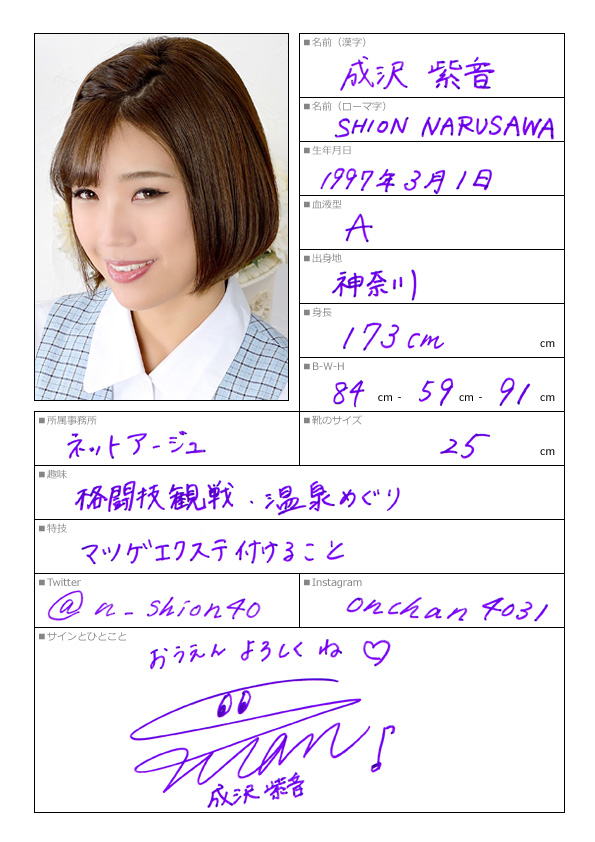 ■名前（漢字）
成沢 紫音
■名前（ローマ字）
SHION NARUSAWA
■生年月日
1997年3月1日
■血液型
A
■出身地
神奈川
■身長
173cm cm
■B-W-H
84 cm - 59 cm - 91 cm
■所属事務所
ネットアージュ
■靴のサイズ
25 cm
■趣味
格闘技観戦、温泉めぐり
■特技
マツゲエクステ付けること
■Twitter
@n_shion40
■Instagram
onchan4031
■サインとひとこと
おうえん よろしくね♡
成沢 紫音